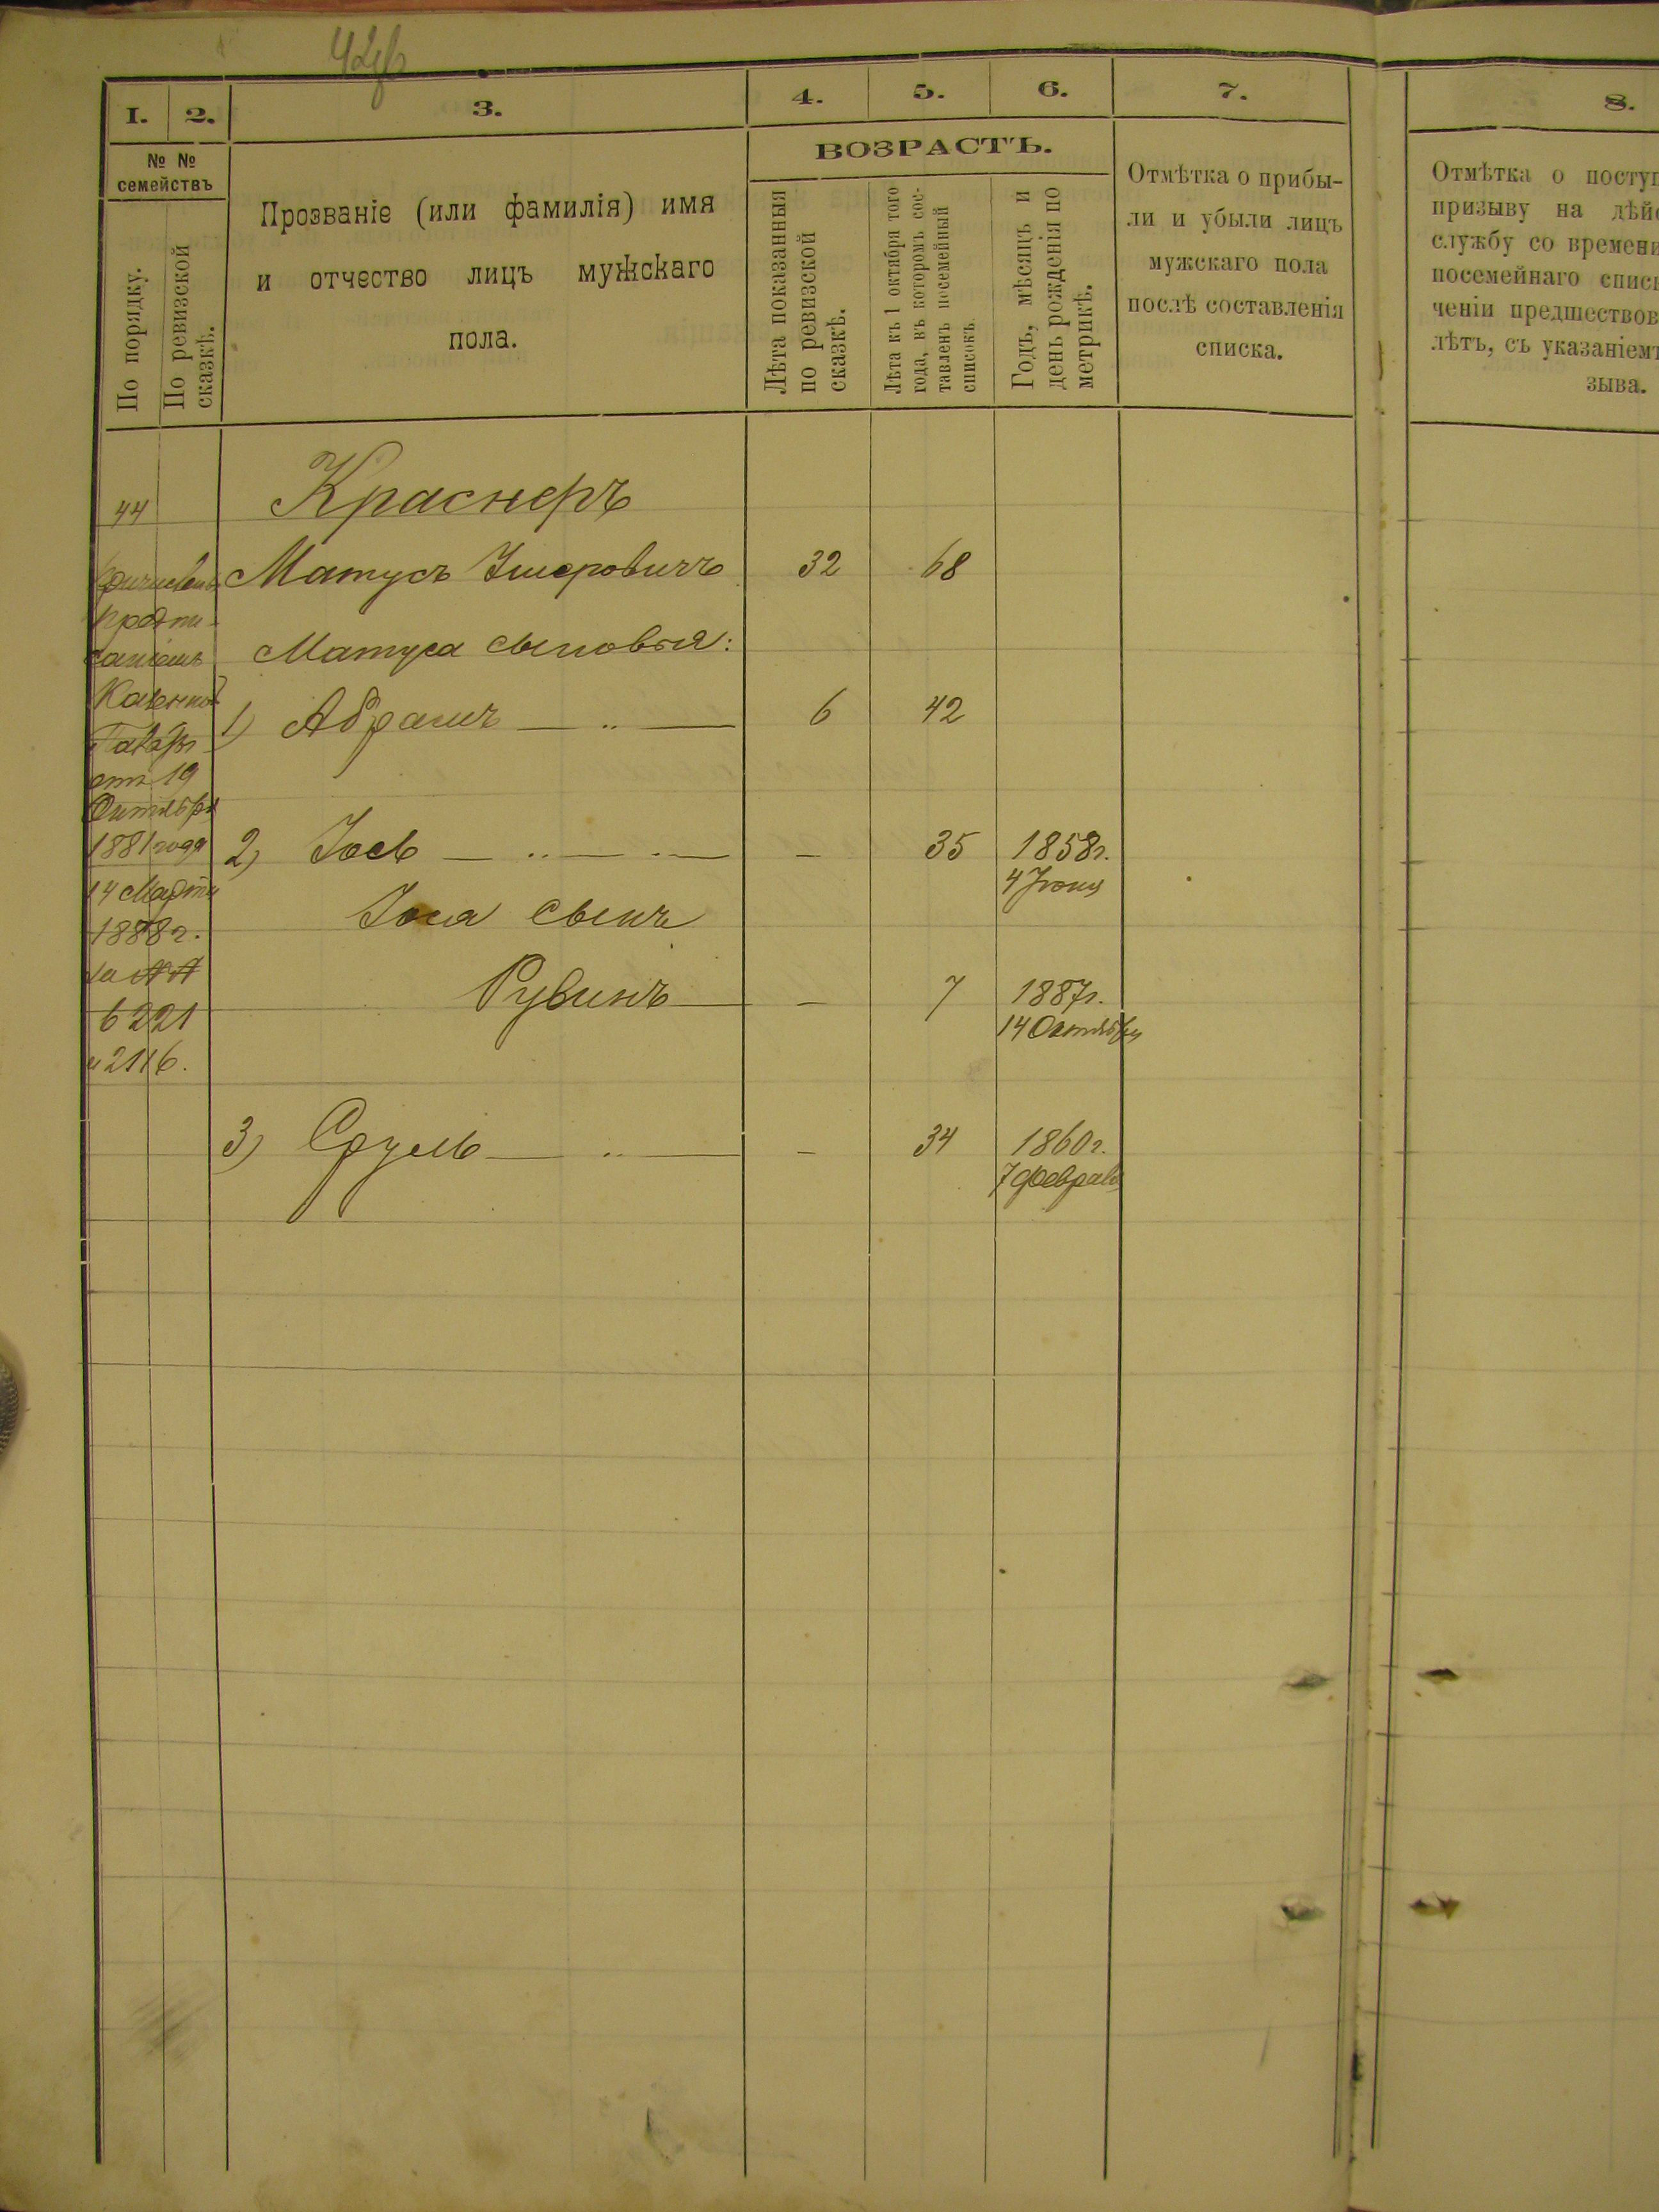 I. 2. 3. 4. 5. 6. 7. 8.
№ №
семействъ
По порядку.
По ревизской
сказкѣ.
Прозваніе (или фамилія) имя
и отчество лицъ мужскаго
пола.
ВОЗРАСТЪ.
Лѣта показанныя
по ревизской
сказкѣ.
Лѣта къ 1 октября того
года, въ которомъ сос-
тавленъ посемейный
списокъ.
Годъ, мѣсяцъ и
день рожденія по
метрикѣ.
Отмѣтка о прибы-
ли и убыли лицъ
мужскаго пола
послѣ составленія
списка.
Отмѣтка о поступ
призыву на дѣй
службу со времени
посемейнаго списк
ченіи предшествов
лѣтъ, съ указаніем
зыва.
44 Краснеръ
Матусъ Ушеровичъ 32 68
Матуса сыновья:
1) Абрамъ — „ — 6 42
2) Іось — „ — - 35 1858г.
4 Іюня
Іося сынъ
Рувинъ — - 7 1887г.
14 Октября
3) Сруль — „ — - 34 1860г.
7 февраля
предпи-
саніемъ
Казенной
отъ 19
Октября
1881 года
14 Марта
1888 г.
за №№
6221
и 2116.